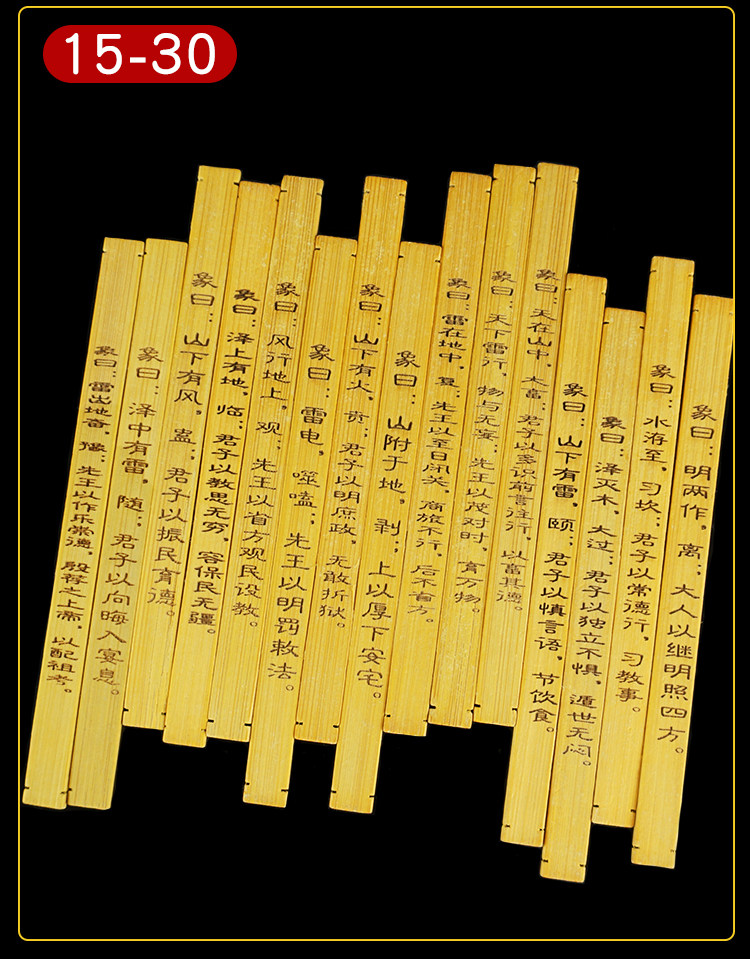 15-30
象曰：雷出地奋，豫；先王以作乐崇德，殷荐之上帝，以配祖考。
象曰：泽中有雷，随；君子以向晦入宴息。
象曰：山下有风，蛊；君子以振民育德。
象曰：泽上有地，临；君子以教思无穷，容保民无疆。
象曰：风行地上，观；先王以省方观民设教。
象曰：雷电，噬嗑；先王以明罚敕法。
象曰：山下有火，贲；君子以明庶政，无敢折狱。
象曰：山附于地，剥；上以厚下安宅。
象曰：雷在地中，复；先王以至日闭关，商旅不行，后不省方。
象曰：天下雷行，物与无妄；先王以茂对时，育万物。
象曰：天在山中，大畜；君子以多识前言往行，以畜其德。
象曰：山下有雷，颐；君子以慎言语，节饮食。
象曰：泽灭木，大过；君子以独立不惧，遁世无闷。
象曰：水洊至，习坎；君子以常德行，习教事。
象曰：明两作，离；大人以继明照四方。